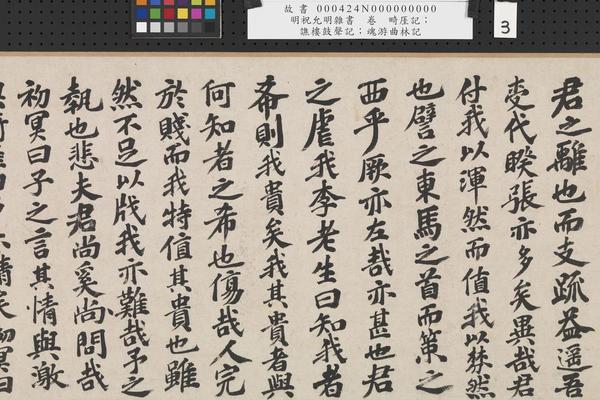 故書 000424N000000000
明祝允明雜書 卷 畸厓記;
譙樓鼓聲記;魂游曲林記
3
君之離也而支疏益遥吾
变代睽張亦多矣異哉君
付我以渾然而值我以棼然
也譬之東馬之首而策之
西乎厥亦左哉亦甚也君
之虐我李老生曰知我者
希則我貴矣我其貴者與
何知者之希也傷哉人完
於賤而我特值其貴也雖
然不足以戕我亦難哉予之
執也悲夫君尚奚尚問哉
初冥曰子之言其情與激